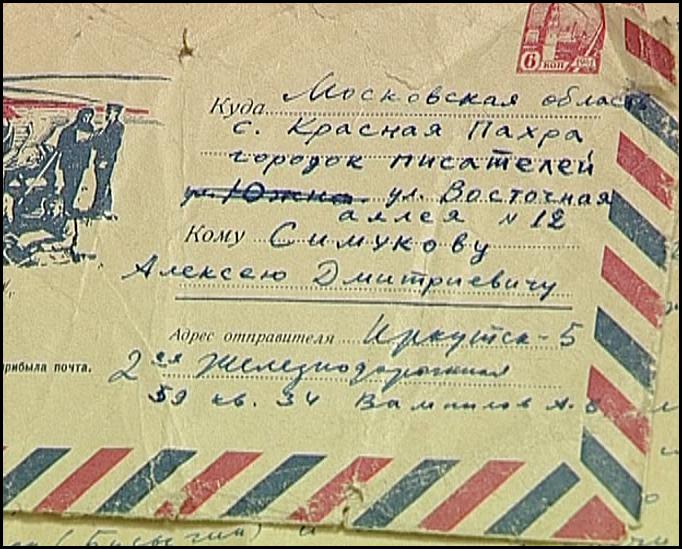 6 коп
Куда Московская область
с. Красная Пахра
городок писателей
ул. Южна. ул. Восточная
аллея N 12
Кому Симукову
Алексею Дмитриевичу
Адрес отправителя Иркутск-5
прибыла почта. 2ая Железнодорожная
59 кв. 34 Вампилов А.В